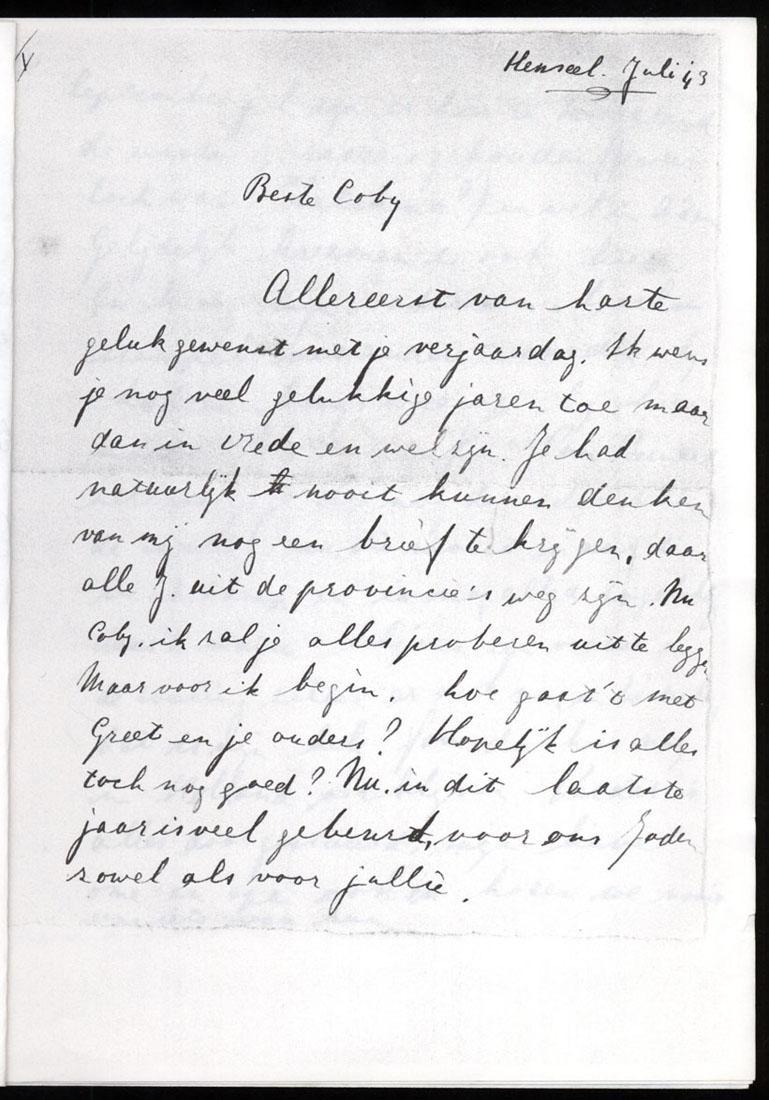 Henscel. Juli '43
Beste Coby
Allereerst van harte
gelukgewenst met je verjaardag. Ik wens
je nog veel gelukkige jaren toe maar
dan in vrede en welzijn. Je had
natuurlijk nooit kunnen denken
van mij nog een brief te krijgen, daar
alle J. uit de provincie's weg zijn. Nu
Coby. ik zal je alles proberen uit te leggen
Maar voor ik begin. hoe gaat 't met
Greet en je ouders? Hopelijk is alles
toch nog goed? Nu. in dit laatste
jaar is veel gebeurd, voor ons Joden
zowel als voor jullie.